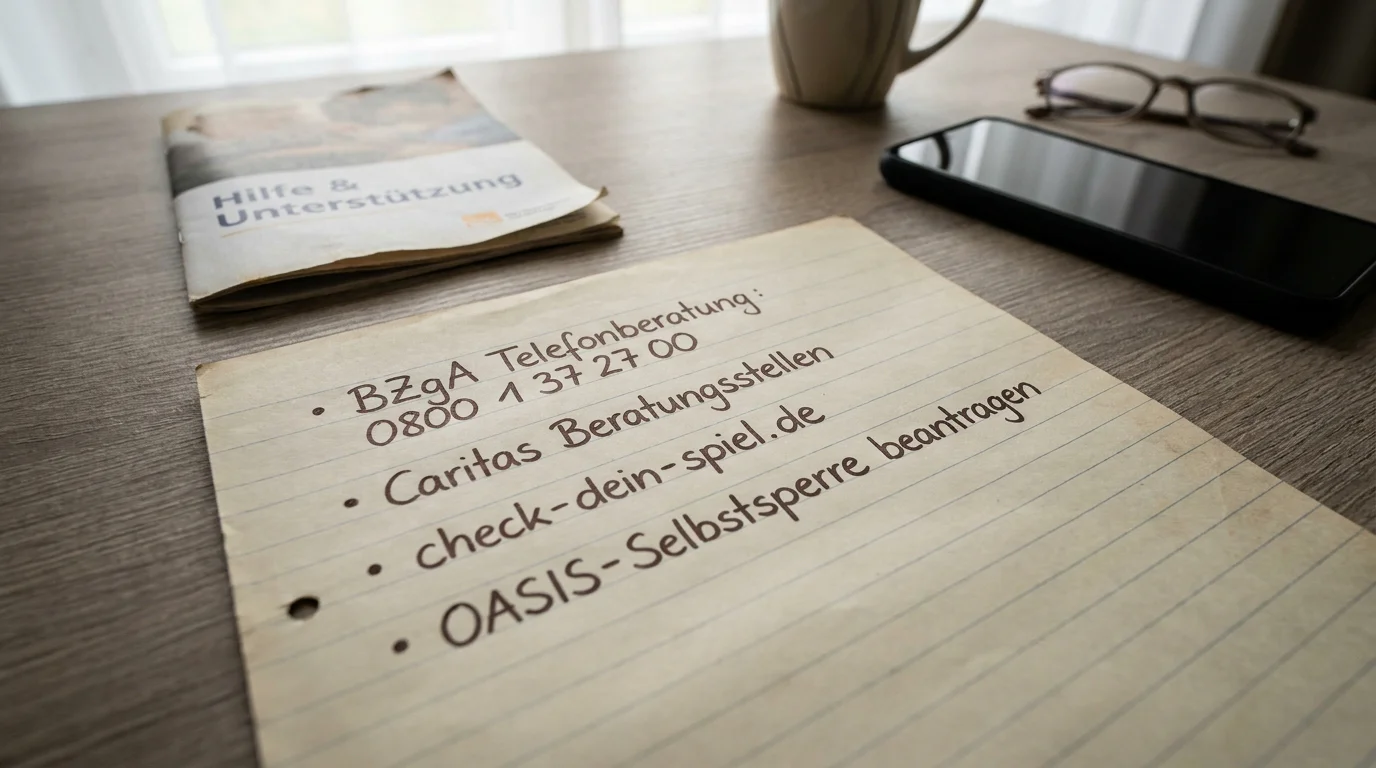 Hilfe &
Unterstützung
• BZgA Telefonberatung:
0800 1 37 27 00
• Caritas Beratungsstellen
• check-dein-spiel.de
• OASIS-Selbstsperre beantragen